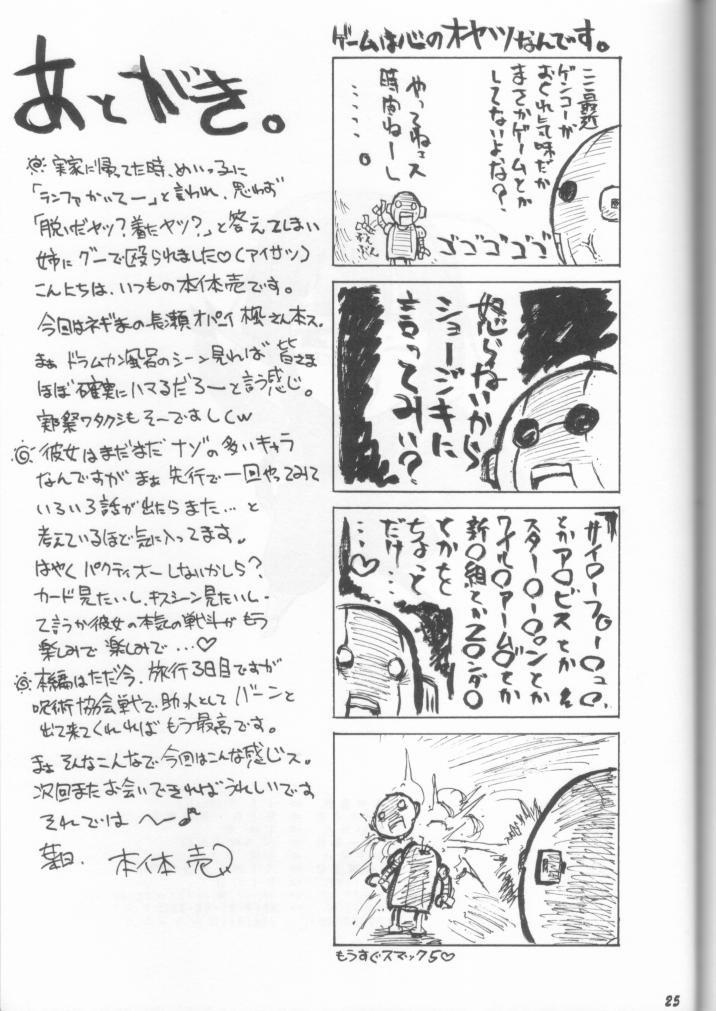 ゲームは心のオヤツなんです。
ここ最近
ゲンコーが
おくれ気味だか
まさかゲームとか
してないよな？
やってねェス
時間ねーし
……。
ゴゴゴゴゴ
怒らないから
ショージキに
言ってみい？
サイ〇ーフ〇ー〇ュ〇、
とかア〇ビスとか
スター〇ー〇ンとか
ワイル〇アーム〇とか
新〇組とかZ〇ンダ〇
とかをと
ちょっと
だけ…
…♡
もうすぐスマック5♡
あとがき。
実家に帰ってた時、めいっ子に
「ランファかいてー」と言われ、思わず
「脱いだヤツ？着たヤツ？」と答えてしまい
姉にグーで殴られました♡(アイサツ)
こんにちは、いつもの本体売です。
今回はネギまの長瀬オパイ楓さん本ス。
まぁドラムカン風呂のシーン見れば皆さま
ほぼ確実にハマるだろーと言う感じ。
実祭ワタクシもそーですしくw
彼女はまだまだナゾの多いキャラ
なんですがまぁ先行で一回やってみて
いろいろ話が出たらまた…と
考えているほど気に入ってます。
はやくパクティオーしないかしら？
カード見たいし、キスシーン見たいし・
て言うか彼女の本気の戦斗がもう
楽しみで楽しみで…♡
本編はただ今、旅行3日目ですが
呪術協会戦で助ッ人としてバーンと
出て来てくれればもう最高です。
まぁそんなこんなで今回はこんな感じス。
次回またお会いできればうれしいです
それではへ〜♪
本体売
25